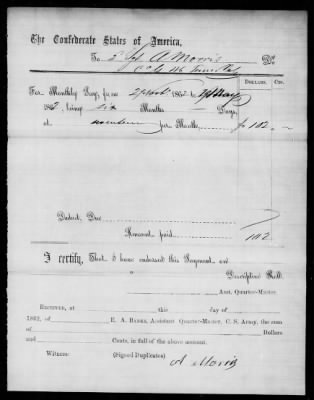 The Confederate States of America,
To A Morris Dr.
Co G 46 Tenn Regt
DOLLARS. CTS.
For Monthly Pay, from 1862 to
1862, being six Months Days,
at seventeen per Month, $ 102 —
Deduct Due
Amount paid 102
I certify, That I have endorsed this Payment on
" Descriptive Roll.
Asst. Quarter-Master.
RECEIVED, at this day of
1862, of E. A. BANKS, ASSISTANT QUARTER-MASTER, C. S. ARMY, the sum
of Dollars
and Cents, in full of the above account.
WITNESS: (SIGNED DUPLICATES)
A Morris